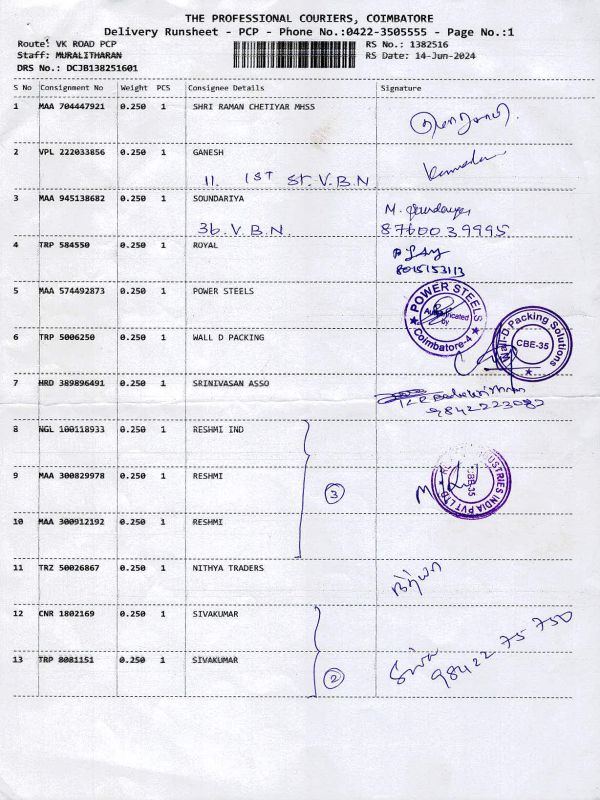 THE PROFESSIONAL COURIERS, COIMBATORE
Delivery Runsheet - PCP - Phone No.:0422-3505555 - Page No.:1
Route: VK ROAD PCP RS No.: 1382516
Staff: MURALITHARAN RS Date: 14-Jun-2024
DRS No.: DCJB138251601
S No Consignment No Weight PCS Consignee Details Signature
1 MAA 704447921 0.250 1 SHRI RAMAN CHETIYAR MHSS
2 VPL 222033856 0.250 1 GANESH
11. 1ST St. V.B.N.
3 MAA 945138682 0.250 1 SOUNDARIYA M.
36. V.B.N. 8760039995
4 TRP 584550 0.250 1 ROYAL
8015153113
5 MAA 574492873 0.250 1 POWER STEELS
POWER STEELS
Authenticated
by
Coimbatore-4
6 TRP 5006250 0.250 1 WALL D PACKING
Wall-D Packing Solutions
CBE-35
7 HRD 389896491 0.250 1 SRINIVASAN ASSO
8 NGL 100118933 0.250 1 RESHMI IND
9 MAA 300829978 0.250 1 RESHMI
3
INDUSTRIES INDIA PVT LTD
CBE-35
10 MAA 300912192 0.250 1 RESHMI
11 TRZ 50026867 0.250 1 NITHYA TRADERS
12 CNR 1802169 0.250 1 SIVAKUMAR
13 TRP 8081151 0.250 1 SIVAKUMAR
2
Siva
98422 75 750